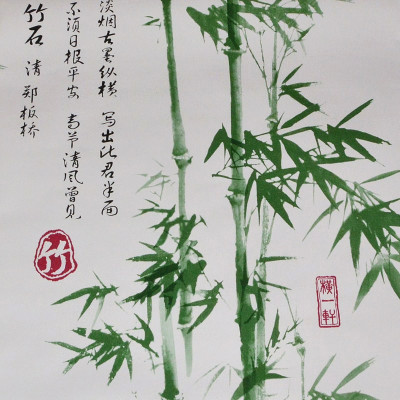 淡烟古墨纵横 写出此君半面
不须日报平安 高节清风曾见
竹石 清 郑板桥
竹
横一軒